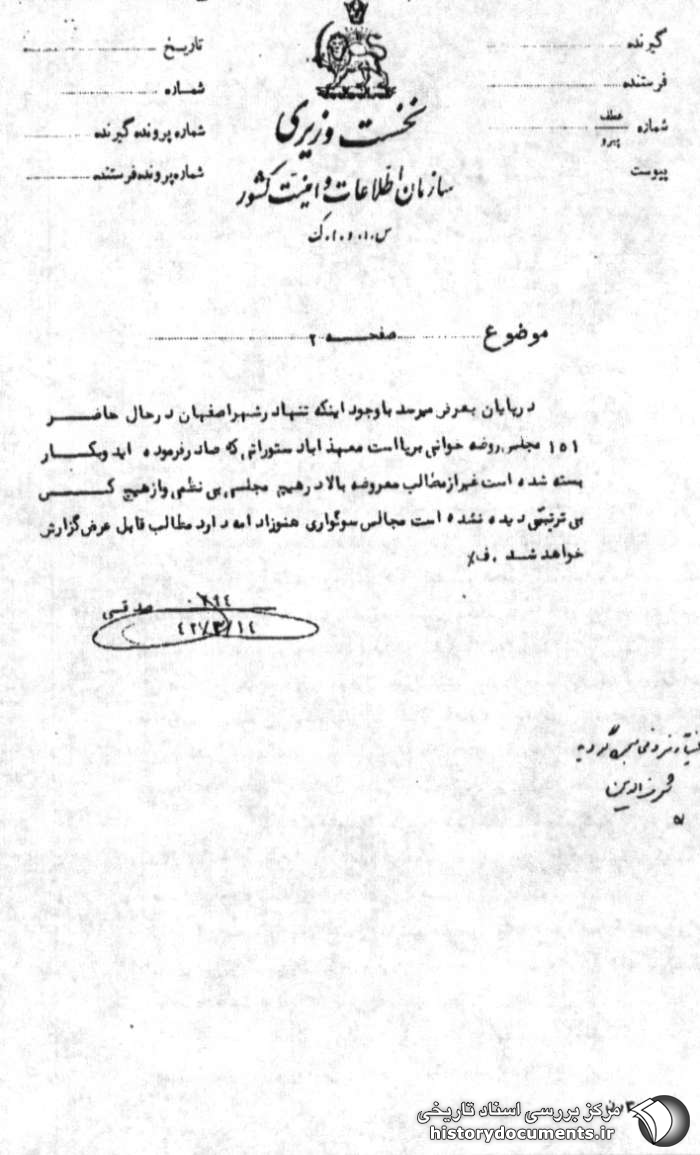 گیرنده
فرستنده
شماره عطف پیرو
پیوست
نخست وزیری
سازمان اطلاعات و امنیت کشور
س.ا.و.ا.ک
تاریخ
شماره
شماره پرونده گیرنده
شماره پرونده فرستنده
موضوع صفحه ۲
در پایان بعرض میرسد با وجود اینکه تنها در شهر اصفهان در حال حاضر
۱۵۱ مجلس روضه خوانی برپا است معهذا با دستوراتی که صادر فرموده اید و بکار
بسته شده است غیر از مطالب معروضه بالا در هیچ مجلسی بی نظمی و از هیچ کس
بی ترتیبی دیده نشده است مجالس سوگواری هنوز ادامه دارد مطالب قابل عرض گزارش
خواهد شد . ف٪
صدقی
۴۲/۳/۱۴
شرف الدین
مرکز بررسی اسناد تاریخی
historydocuments.ir